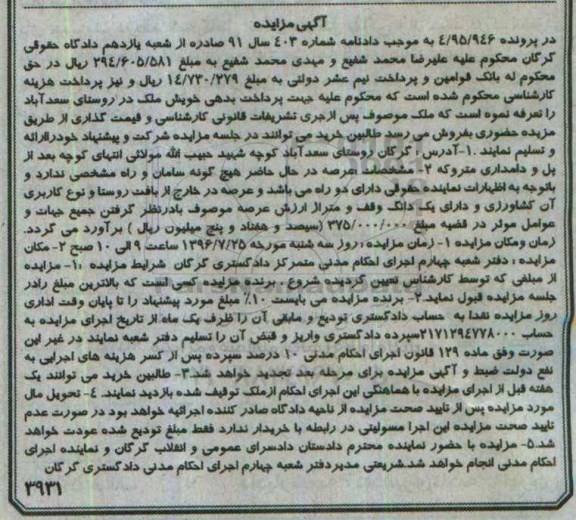 آگهی مزایده
در پرونده ۴/۹۵/۹۴۶ به موجب دادنامه شماره ۴۰۳ سال ۹۱ صادره از شعبه یازدهم دادگاه حقوقی
گرگان محکوم علیه علیرضا محمد شفیع و مهدی محمد شفیع به مبلغ ۲۹۴/۶۰۵/۵۸۱ ریال در حق
محکوم له بانک قوامین و پرداخت نیم عشر دولتی به مبلغ ۱۴/۷۳۰/۲۷۹ ریال و نیز پرداخت هزینه
کارشناسی محکوم شده است که محکوم علیه جهت پرداخت بدهی خویش ملک در روستای سعدآباد
را تعرفه نموه است که ملک موصوف پس ازجری تشریفات قانونی کارشناسی و قیمت گذاری از طریق
مزیده حضوری بفروش می رسد طالبین خرید می توانند در جلسه مزایده شرکت و پیشنهاد خودراارائه
و تسلیم نمایند .۱-آدرس : گرگان روستای سعدآباد کوچه شهید حبیب الله مولائی انتهای کوچه بعد از
پل و دامداری متروکه ۲-مشخصات عرصه در حال حاضر هیچ گونه سامان و راه مشخصی ندارد و
باتوجه به اظهارات نماینده حقوقی دارای دو راه می باشد و عرصه در خارج از بافت روستا و نوع کاربری
آن کشاورزی و دارای یک دانگ وقف و متراژ ارزش عرصه موصوف بادرنظر گرفتن جمیع جهات و
عوامل موثر در قضیه مبلغ ۳۷۵/۰۰۰/۰۰۰ (سیصد و هفتاد و پنج میلیون ریال ) برآورد می گردد.
زمان ومکان مزایده ۱- زمان مزایده :روز سه شنبه مورخه ۱۳۹۶/۷/۲۵ ساعت ۹ الی ۱۰ صبح ۲-مکان
مزایده : دفتر شعبه چهارم اجرای احکام مدنی متمرکز دادگستری گرگان شرایط مزایده :۱- مزایده
از مبلغی که توسط کارشناس تعیین گردیده شروع ..برنده مزایده کسی است که بالاترین مبلغ رادر
جلسه مزایده قبول نماید.۲- برنده مزایده می بایست ۱۰٪ مبلغ مورد پیشنهاد را تا پایان وقت اداری
روز مزایده نقدا به حساب دادگستری تودیع و مابقی آن را ظرف یک ماه از تاریخ اجرای مزایده به
حساب ۲۱۷۱۲۹۴۷۷۸۰۰۰سپرده دادگستری واریز و قبض آن را تسلیم دفتر شعبه نمایند در غیر این
صورت وفق ماده ۱۲۹ قانون اجرای احکام مدنی ۱۰ درصد سپرده پس از کسر هزینه های اجرایی به
نفع دولت ضبط و آگهی مزایده برای مرحله بعد تجدید خواهد شد.۳- طالبین خرید می توانند یک
هفته قبل از اجرای مزایده با هماهنگی این اجرای احکام ازملک توقیف شده بازدید نمایند. ۴- تحویل مال
مورد مزایده پس از تایید صحت مزایده از ناحیه دادگاه صادر کننده اجرائیه خواهد بود در صورت عدم
تایید صحت مزایده این اجرا مسولیتی در رابطه با خریدار ندارد فقط مبلغ تودیع شده عودت خواهد
شد.۵- مزایده با حضور نماینده محترم دادستان دادسرای عمومی و انقلاب گرگان و نماینده اجرای
احکام مدنی انجام خواهد شد.شریعتی مدیردفتر شعبه چهارم اجرای احکام مدنی دادگستری گرگان
۳۹۳۱